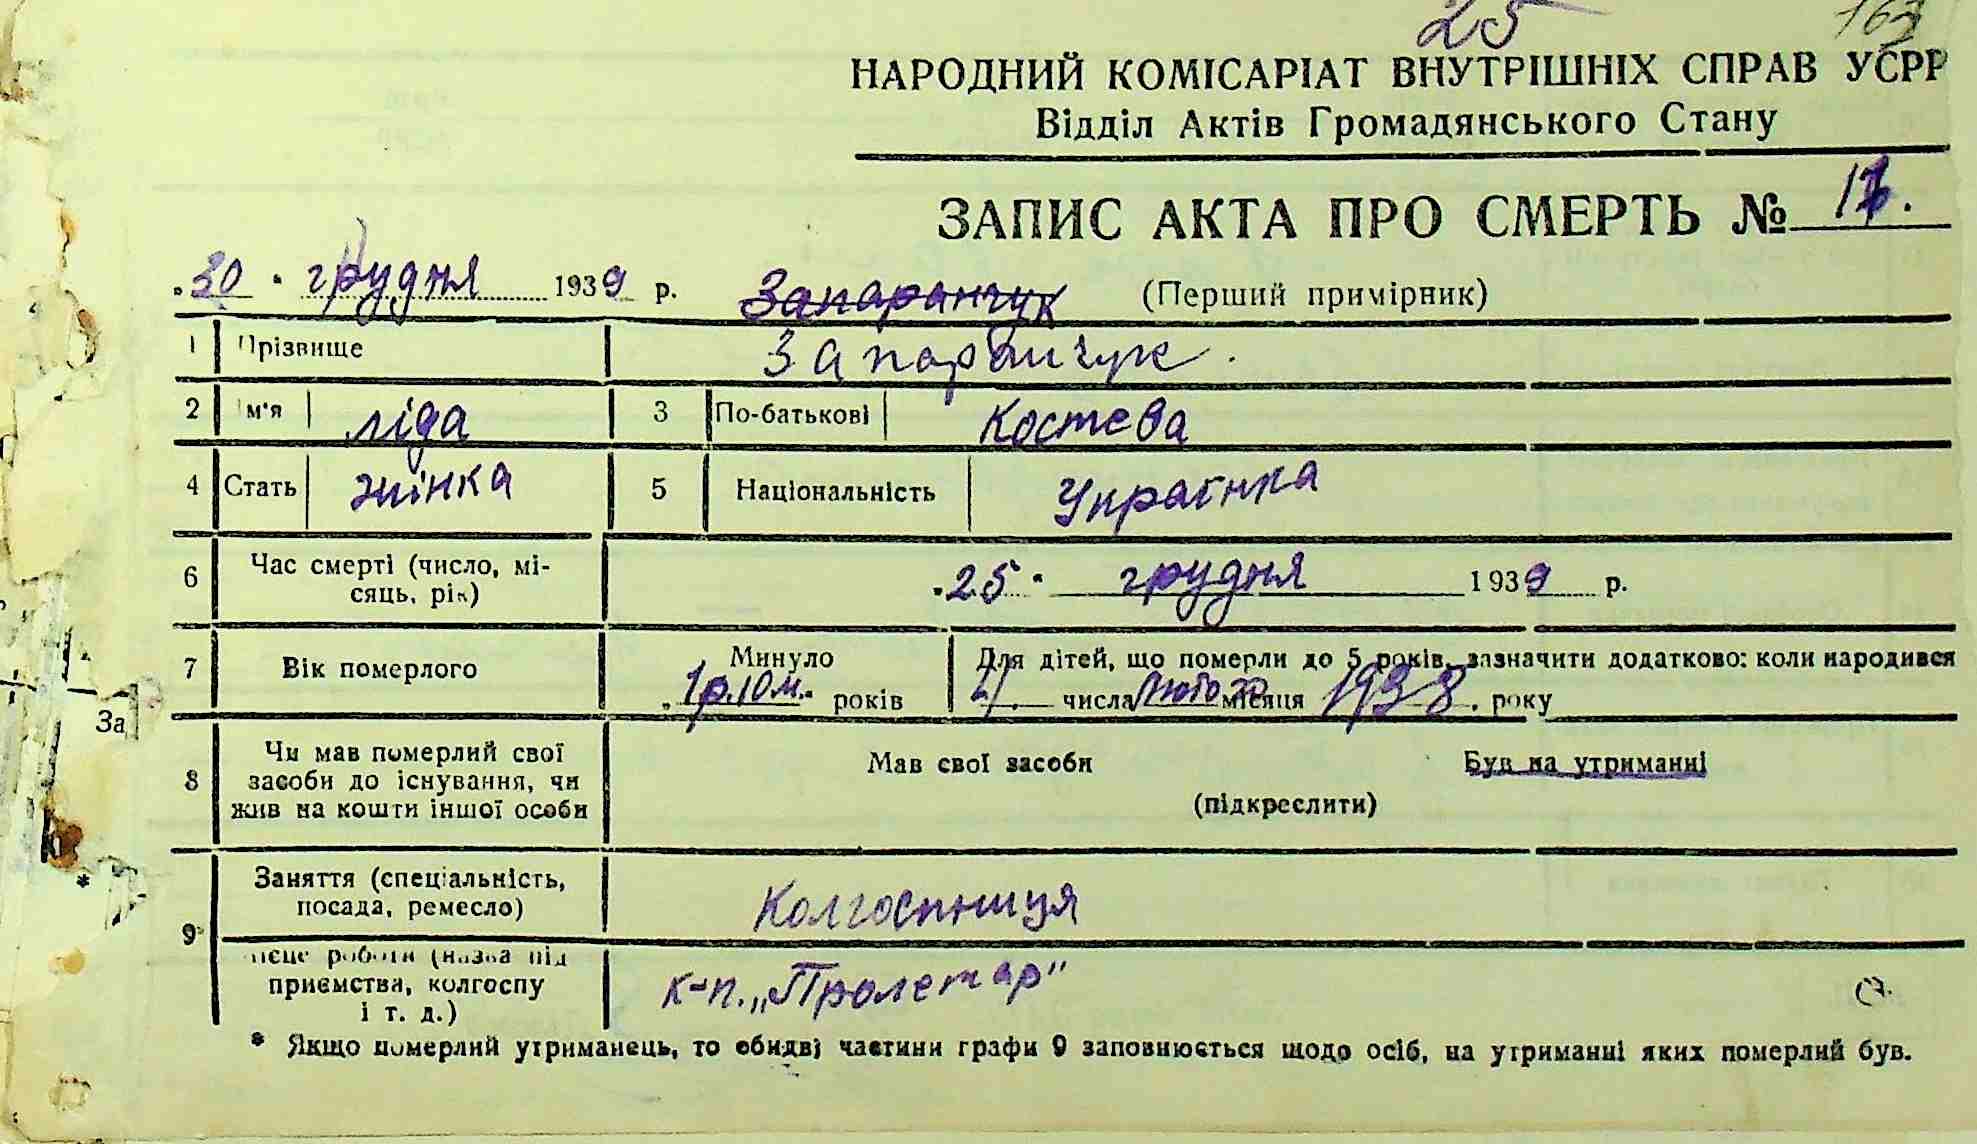 25 163
НАРОДНИЙ КОМІСАРІАТ ВНУТРІШНІХ СПРАВ УСРР
Відділ Актів Громадянського Стану
ЗАПИС АКТА ПРО СМЕРТЬ №
„30" грудня 1939 р. Запаранчук (Перший примірник)
1 Прізвище Запоранчук.
2 Ім'я Ліда 3 По-батькові Костева
4 Стать жінка 5 Національність Українка
6 Час смерті (число, мі-
сяць, рік) „25" грудня 1939 р.
7 Вік померлого Минуло 1р.10м. років Для дітей, що померли до 5 років, зазначити додатково: коли народився
числа лютого місяця 1938. року
8 Чи мав померлий свої
засоби до існування, чи
жив на кошти іншої особи
Мав свої засоби Був на утриманні
(підкреслити)
За
9 Заняття (спеціальність,
посада, ремесло) Колгоспниця
*
місце роботи (назва під
приємства, колгоспу
і т. д.) к-п. „Пролетар"
* Якщо померлий утриманець, то обидві частини графи 9 заповнюється щодо осіб, на утриманні яких померлий був.